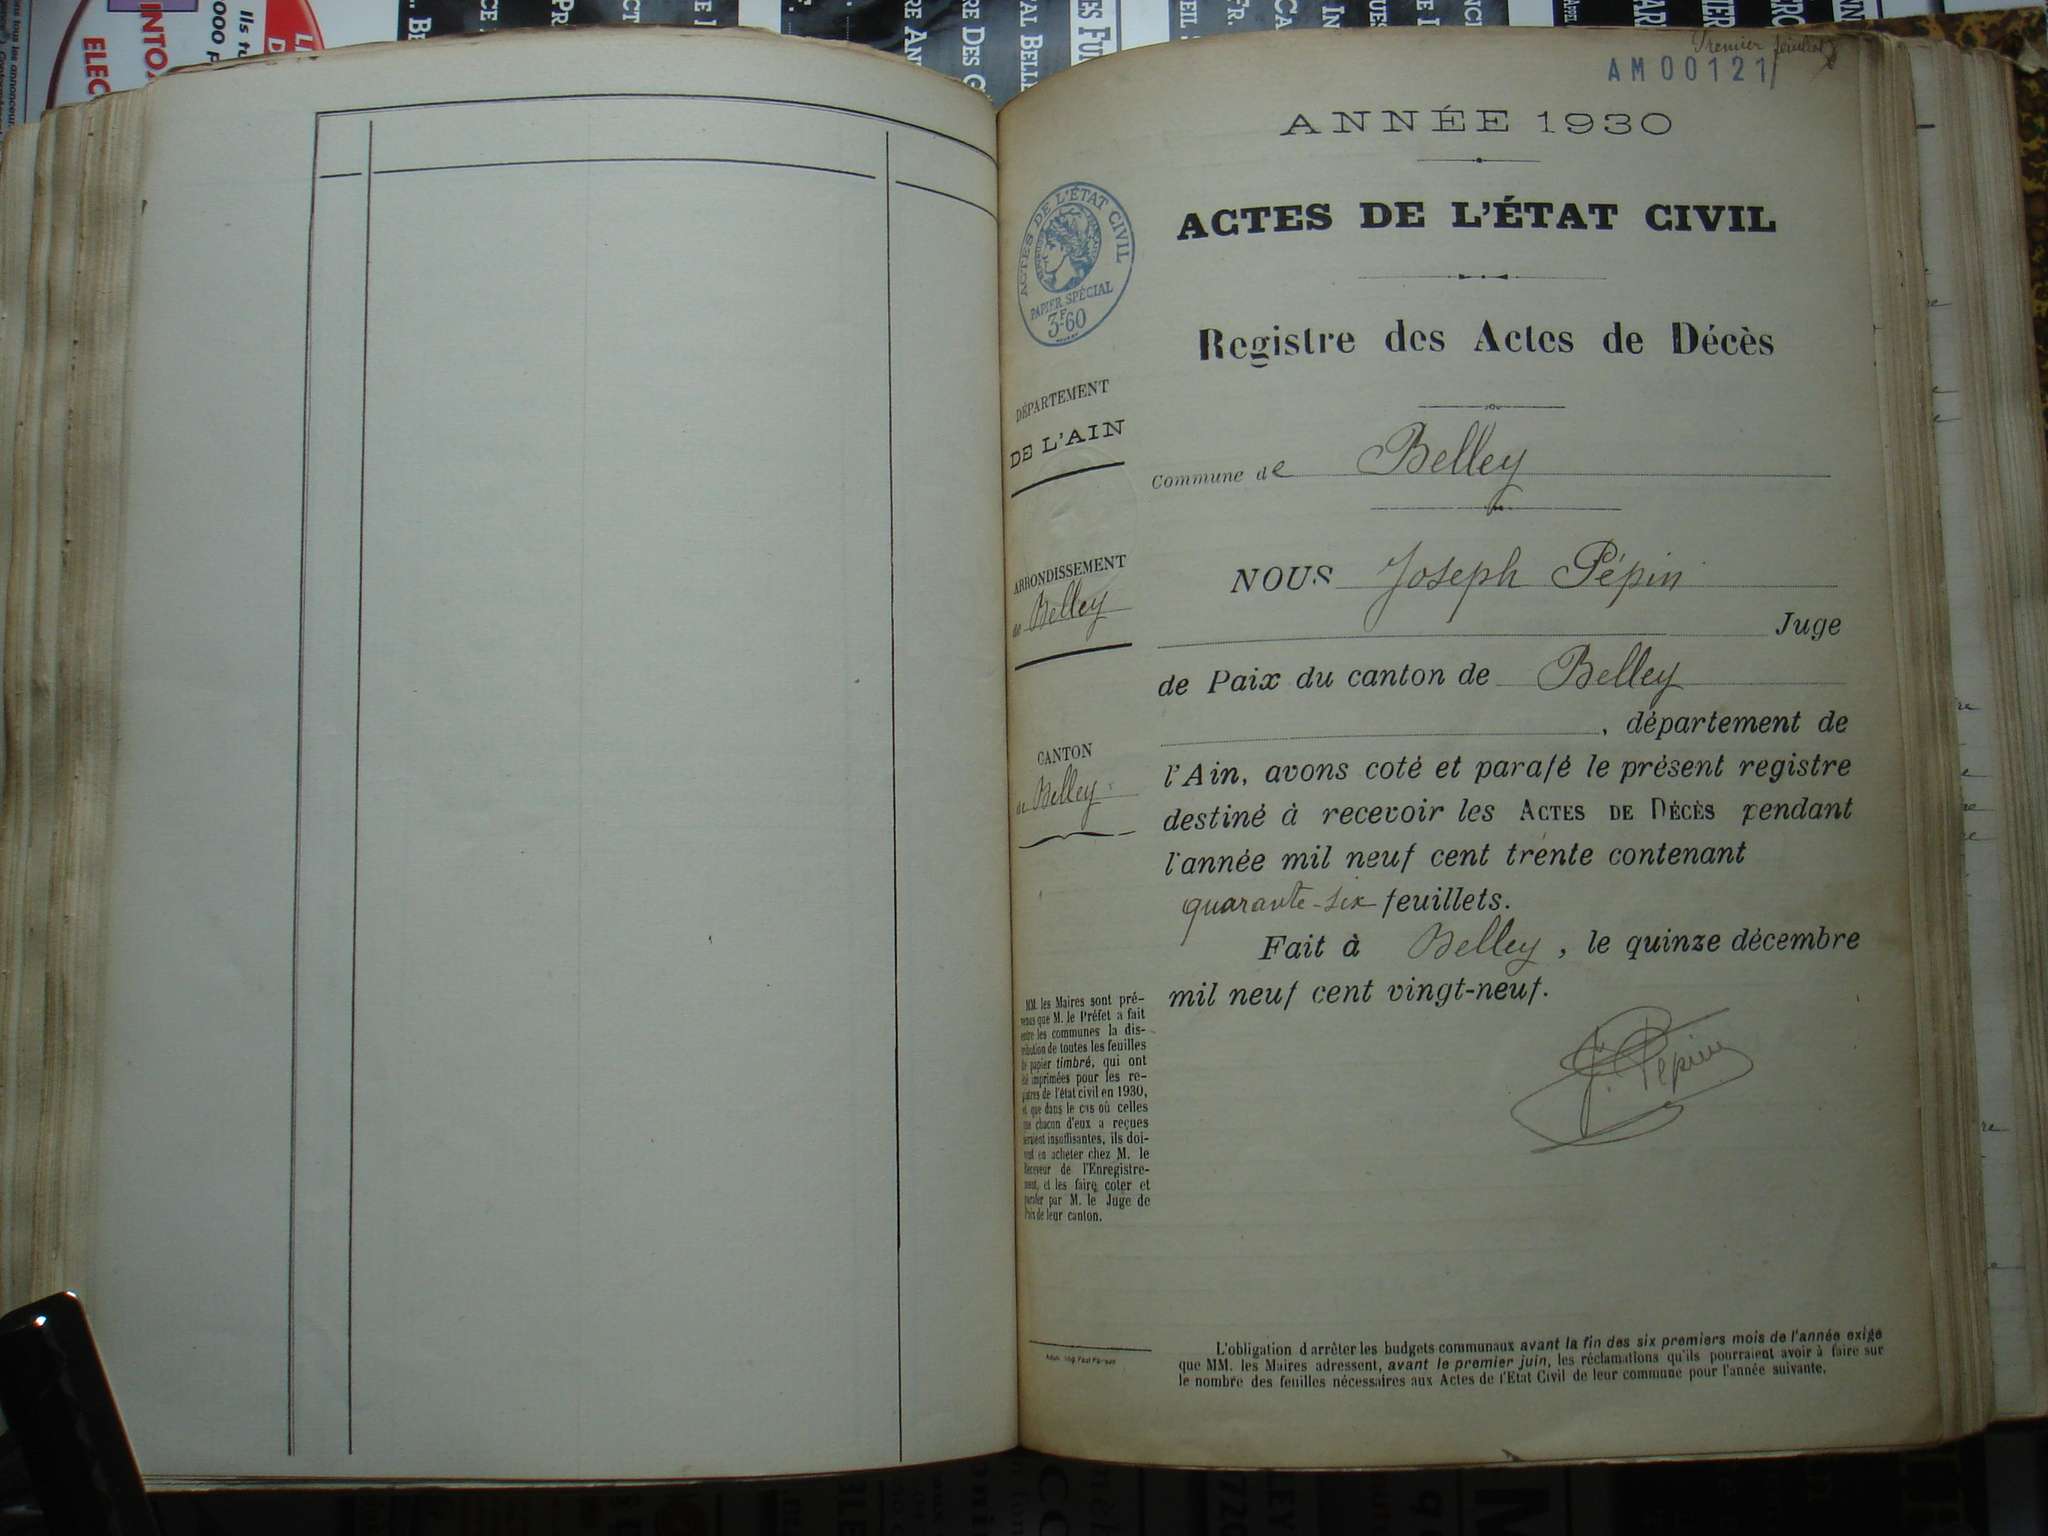 Premier feuillet
AM00121
ANNÉE 1930
ACTES DE L'ÉTAT CIVIL
Registre des Actes de Décès
ACTES DE L'ÉTAT CIVIL
PAPIER SPÉCIAL
3F60
DÉPARTEMENT
DE L'AIN
ARRONDISSEMENT
de Belley
CANTON
de Belley
Commune de Belley
NOUS Joseph Pépin
Juge
de Paix du canton de Belley
, département de
l'Ain, avons coté et parafé le présent registre
destiné à recevoir les ACTES DE DÉCÈS pendant
l'année mil neuf cent trente contenant
quarante-six feuillets.
Fait à Belley, le quinze décembre
mil neuf cent vingt-neuf.
J. Pépin
MM. les Maires sont pré-
venus que M. le Préfet a fait
entre les communes la dis-
tribution de toutes les feuilles
de papier timbré, qui ont
été imprimées pour les re-
gistres de l'état civil en 1930,
et que dans le cas où celles
que chacun d'eux a reçues
seraient insuffisantes, ils doi-
vent en acheter chez M. le
Receveur de l'Enregistre-
ment, et les faire coter et
parafer par M. le Juge de
Paix de leur canton.
L'obligation d'arrêter les budgets communaux avant la fin des six premiers mois de l'année exige
que MM. les Maires adressent, avant le premier juin, les réclamations qu'ils pourraient avoir à faire sur
le nombre des feuilles nécessaires aux Actes de l'Etat Civil de leur commune pour l'année suivante.